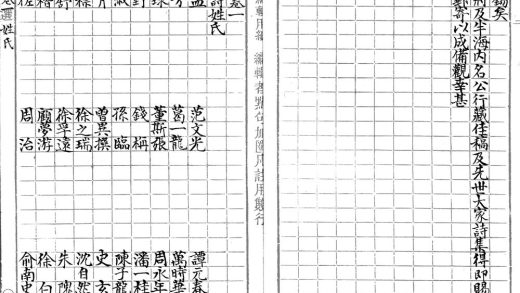 錫矣
及半海內名公行藏佳稿及先世大家詩集得即賜
寄以成備觀幸甚
編輯者點句加圈凡註用雙行
卷一
詩姓氏
范文光 譚元春
葛一龍 萬時華
董斯張 周永年
錢 潘一桂
孫臨 陳子龍
曾異撰 史玄
徐之瑞 沈自然
徐孚遠 朱隗
顧夢游 徐白
周治 俞南史
選姓氏